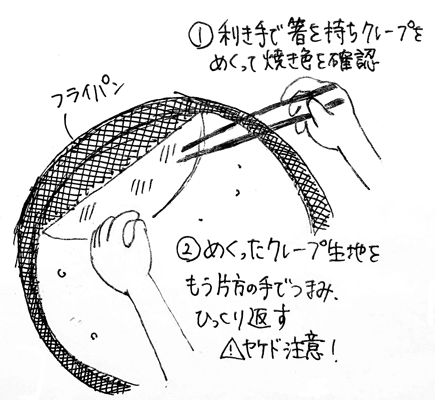 ①利き手で箸を持ちクレープを
めくって焼き色を確認
フライパン
②めくったクレープ生地を
もう片方の手でつまみ、
ひっくり返す
⚠ヤケド注意!